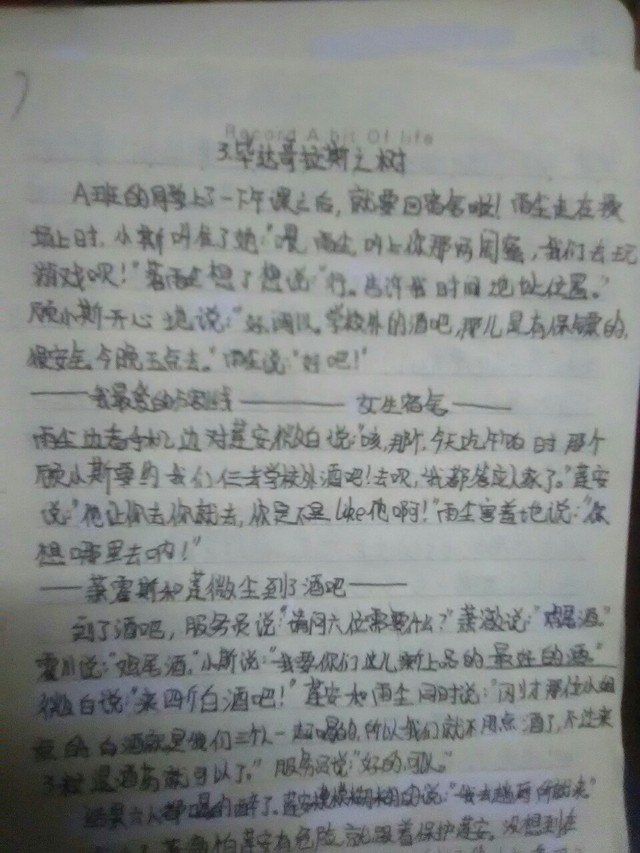 Record A bit Of life
3.毕达哥拉斯之树
A班的同学上了一下午课之后，就要回宿舍啦！雨尘走在操
场上时，小斯叫住了她："嘿，雨尘，叫上你那两闺蜜，我们去玩
游戏呗！"若雨尘想了想说："行。告诉我时间地址位置。"
顾小斯开心地说："好，阔以。学校外的酒吧，那儿是有保镖的，
很安全。今晚五点去。"雨尘说："好吧！"
——我最爱的分割线———— 女生宿舍——
雨尘边看手机边对莲安微白说："咳，那个，今天吃午饭时那个
顾小斯要约我们仨去学校外酒吧！去呗，我都答应人家了。"莲安
说："他让你去你就去，你是不是like他啊！"雨尘害羞地说："你
想哪里去了呐！"
——莱霆斯和莲微尘到了酒吧——
到了酒吧，服务员说："请问六位需要什么？"莱说："鸡尾酒。"
霆川说："鸡尾酒。"小斯说："我要你们这儿新上品的最烈的酒。"
微白说："来四个白酒吧！"莲安和雨尘同时说："刚才那位小姐
的白酒就是我们三个人一起喝的，所以我们就不用点酒了，不过来
就可以了。"服务员说："好的，可以。"
结果六人都喝醉了。莲安说："我去趟厕所回来"
怕莲安有危险，就跟着保护莲安。没想到在